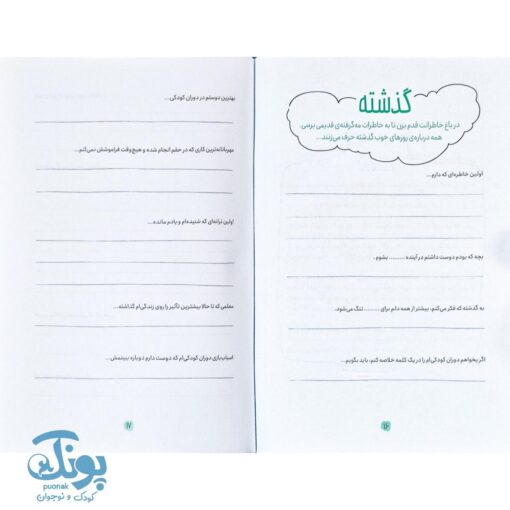 گذشته
در باغ خاطراتت قدم بزن تا به خاطرات مه‌گرفته‌ی قدیمی برسی.
همه درباره‌ی روزهای خوب گذشته حرف می‌زنند...
اولین خاطره‌ای که دارم...
بچه که بودم دوست داشتم در آینده ......... بشوم.
به گذشته که فکر می‌کنم، بیشتر از همه دلم برای ......... تنگ می‌شود.
اگر بخواهم دوران کودکی‌ام را در یک کلمه خلاصه کنم، باید بگویم...
۱۶
بهترین دوستم در دوران کودکی...
مهربانانه‌ترین کاری که در حقم انجام شده و هیچ‌وقت فراموشش نمی‌کنم...
اولین ترانه‌ای که شنیده‌ام و یادم مانده...
معلمی که تا حالا بیشترین تأثیر را روی زندگی‌ام گذاشته...
اسباب‌بازی دوران کودکی‌ام که دوست دارم دوباره ببینمش...
۱۷
پونک
puonak
کودک و نوجوان